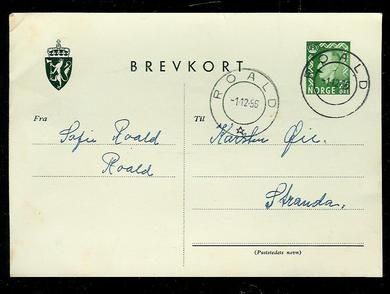 BREVKORT
ROALD
-1-12-56
ROALD
NORGE
25
ØRE
Fra
Sofie Roald
Roald
Til
Karsten Øie.
Stranda.
(Poststedets navn)